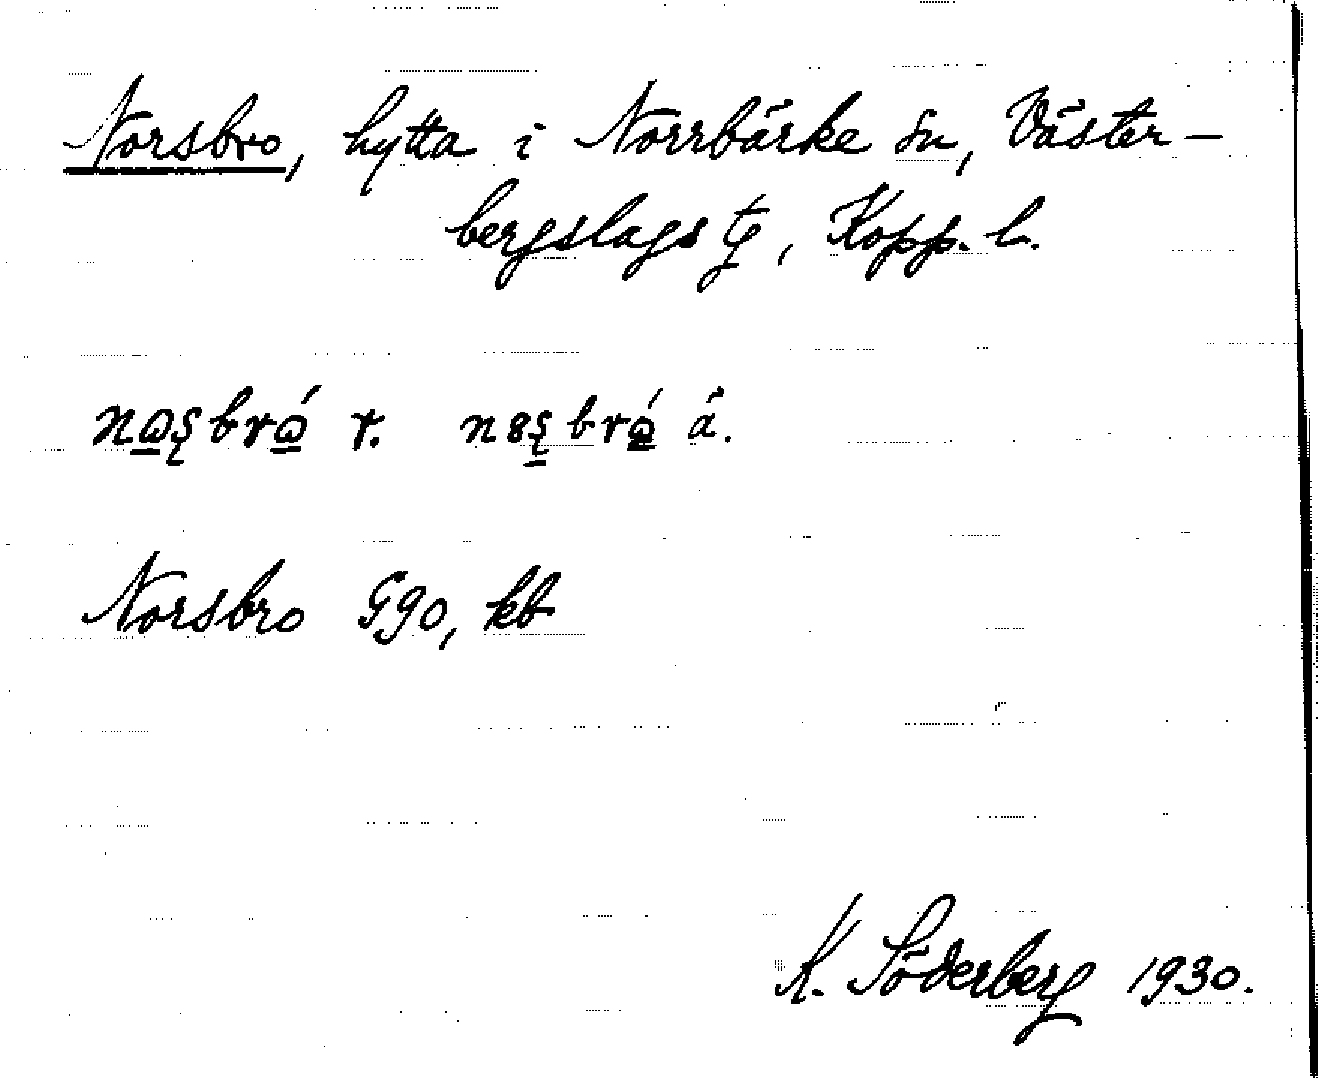 Norsbro, hytta i Norrbärke sn, Väster-
bergslags tg, Kopp. l.
r. á.
Norsbro G90, kb
K. Söderberg 1930.